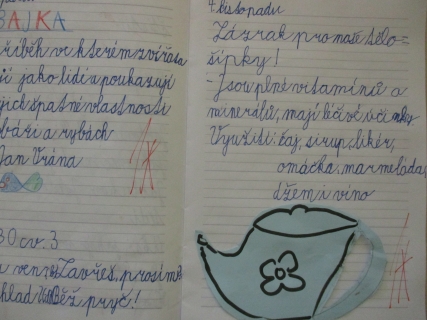 BAJKA
příběh ve kterém zvířata
jí jako lidi a poukazují
jejich špatné vlastnosti
o rybách
Jan Vrána
30 cv. 3
Zavřeš, prosím
klad Běž pryč!
4. listopadu
Zázrak pro naše tělo =
šípky!
- Jsou plné vitamínů a
minerálů, mají léčivé účinky
Využití: čaj, sirup, likér,
omáčka, marmeláda,
džem i víno
1x
1x